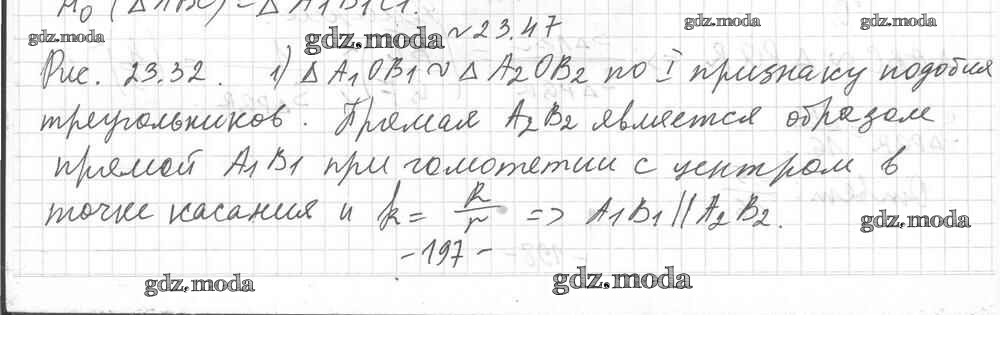 H₀ (ΔABC) = ΔA₁B₁C₁.
gdz.moda gdz.moda ~ 23.47 gdz.moda gdz.moda
Рис. 23.32. 1) Δ A₁OB₁ ~ Δ A₂OB₂ по I признаку подобия
треугольников. Прямая A₂B₂ является образом
прямой A₁B₁ при гомотетии с центром в
точке касания и k = R/r => A₁B₁ || A₂B₂. gdz.moda
- 197 -
gdz.moda gdz.moda